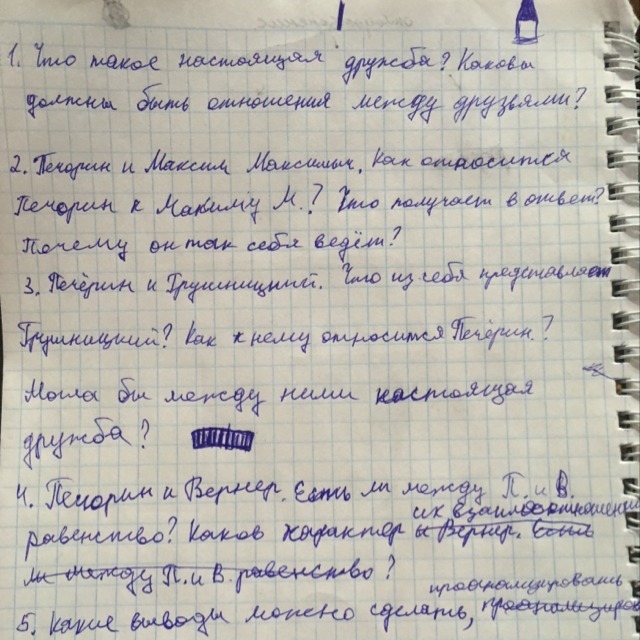 1. Что такое настоящая дружба? Каковы
должны быть отношения между друзьями?
2. Печорин и Максим Максимыч. Как относится
Печорин к Максиму М.? Что получает в ответ?
Почему он так себя ведёт?
3. Печёрин и Грушницкий. Что из себя представляет
Грушницкий? Как к нему относится Печёрин?
Могла бы между ними настоящая
дружба?
4. Печорин и Вернер. Есть ли между П. и В.
их взаимоотношений
равенство? Каков характер и Вернер. Есть
ли между П. и В. равенство?
проанализировать
5. Какие выводы можно сделать,